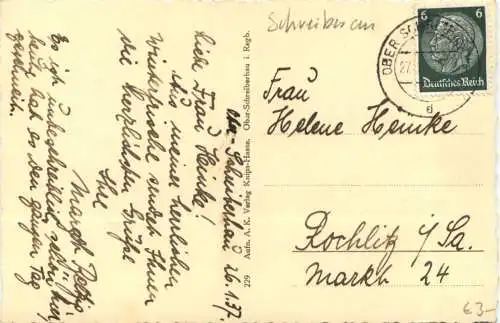 Schreiberhau
6
6
Deutsches Reich
OBER-SCHREIBERHAU
d
Ober-Schreiberhau 26.1.37.
Liebe Frau Heinke!
Aus meiner herrlichen
Winterfrische sendet Ihnen
die herzlichsten Grüße
Ihre
Es ist unbeschreiblich schön hier,
heute hat es den ganzen Tag
geschneit.
229 Aufn. A. K. Verlag Knips-Hasse, Ober-Schreiberhau i. Rsgb.
Frau
Helene Heinke
Rochlitz i/Sa.
Markt 24
€3-